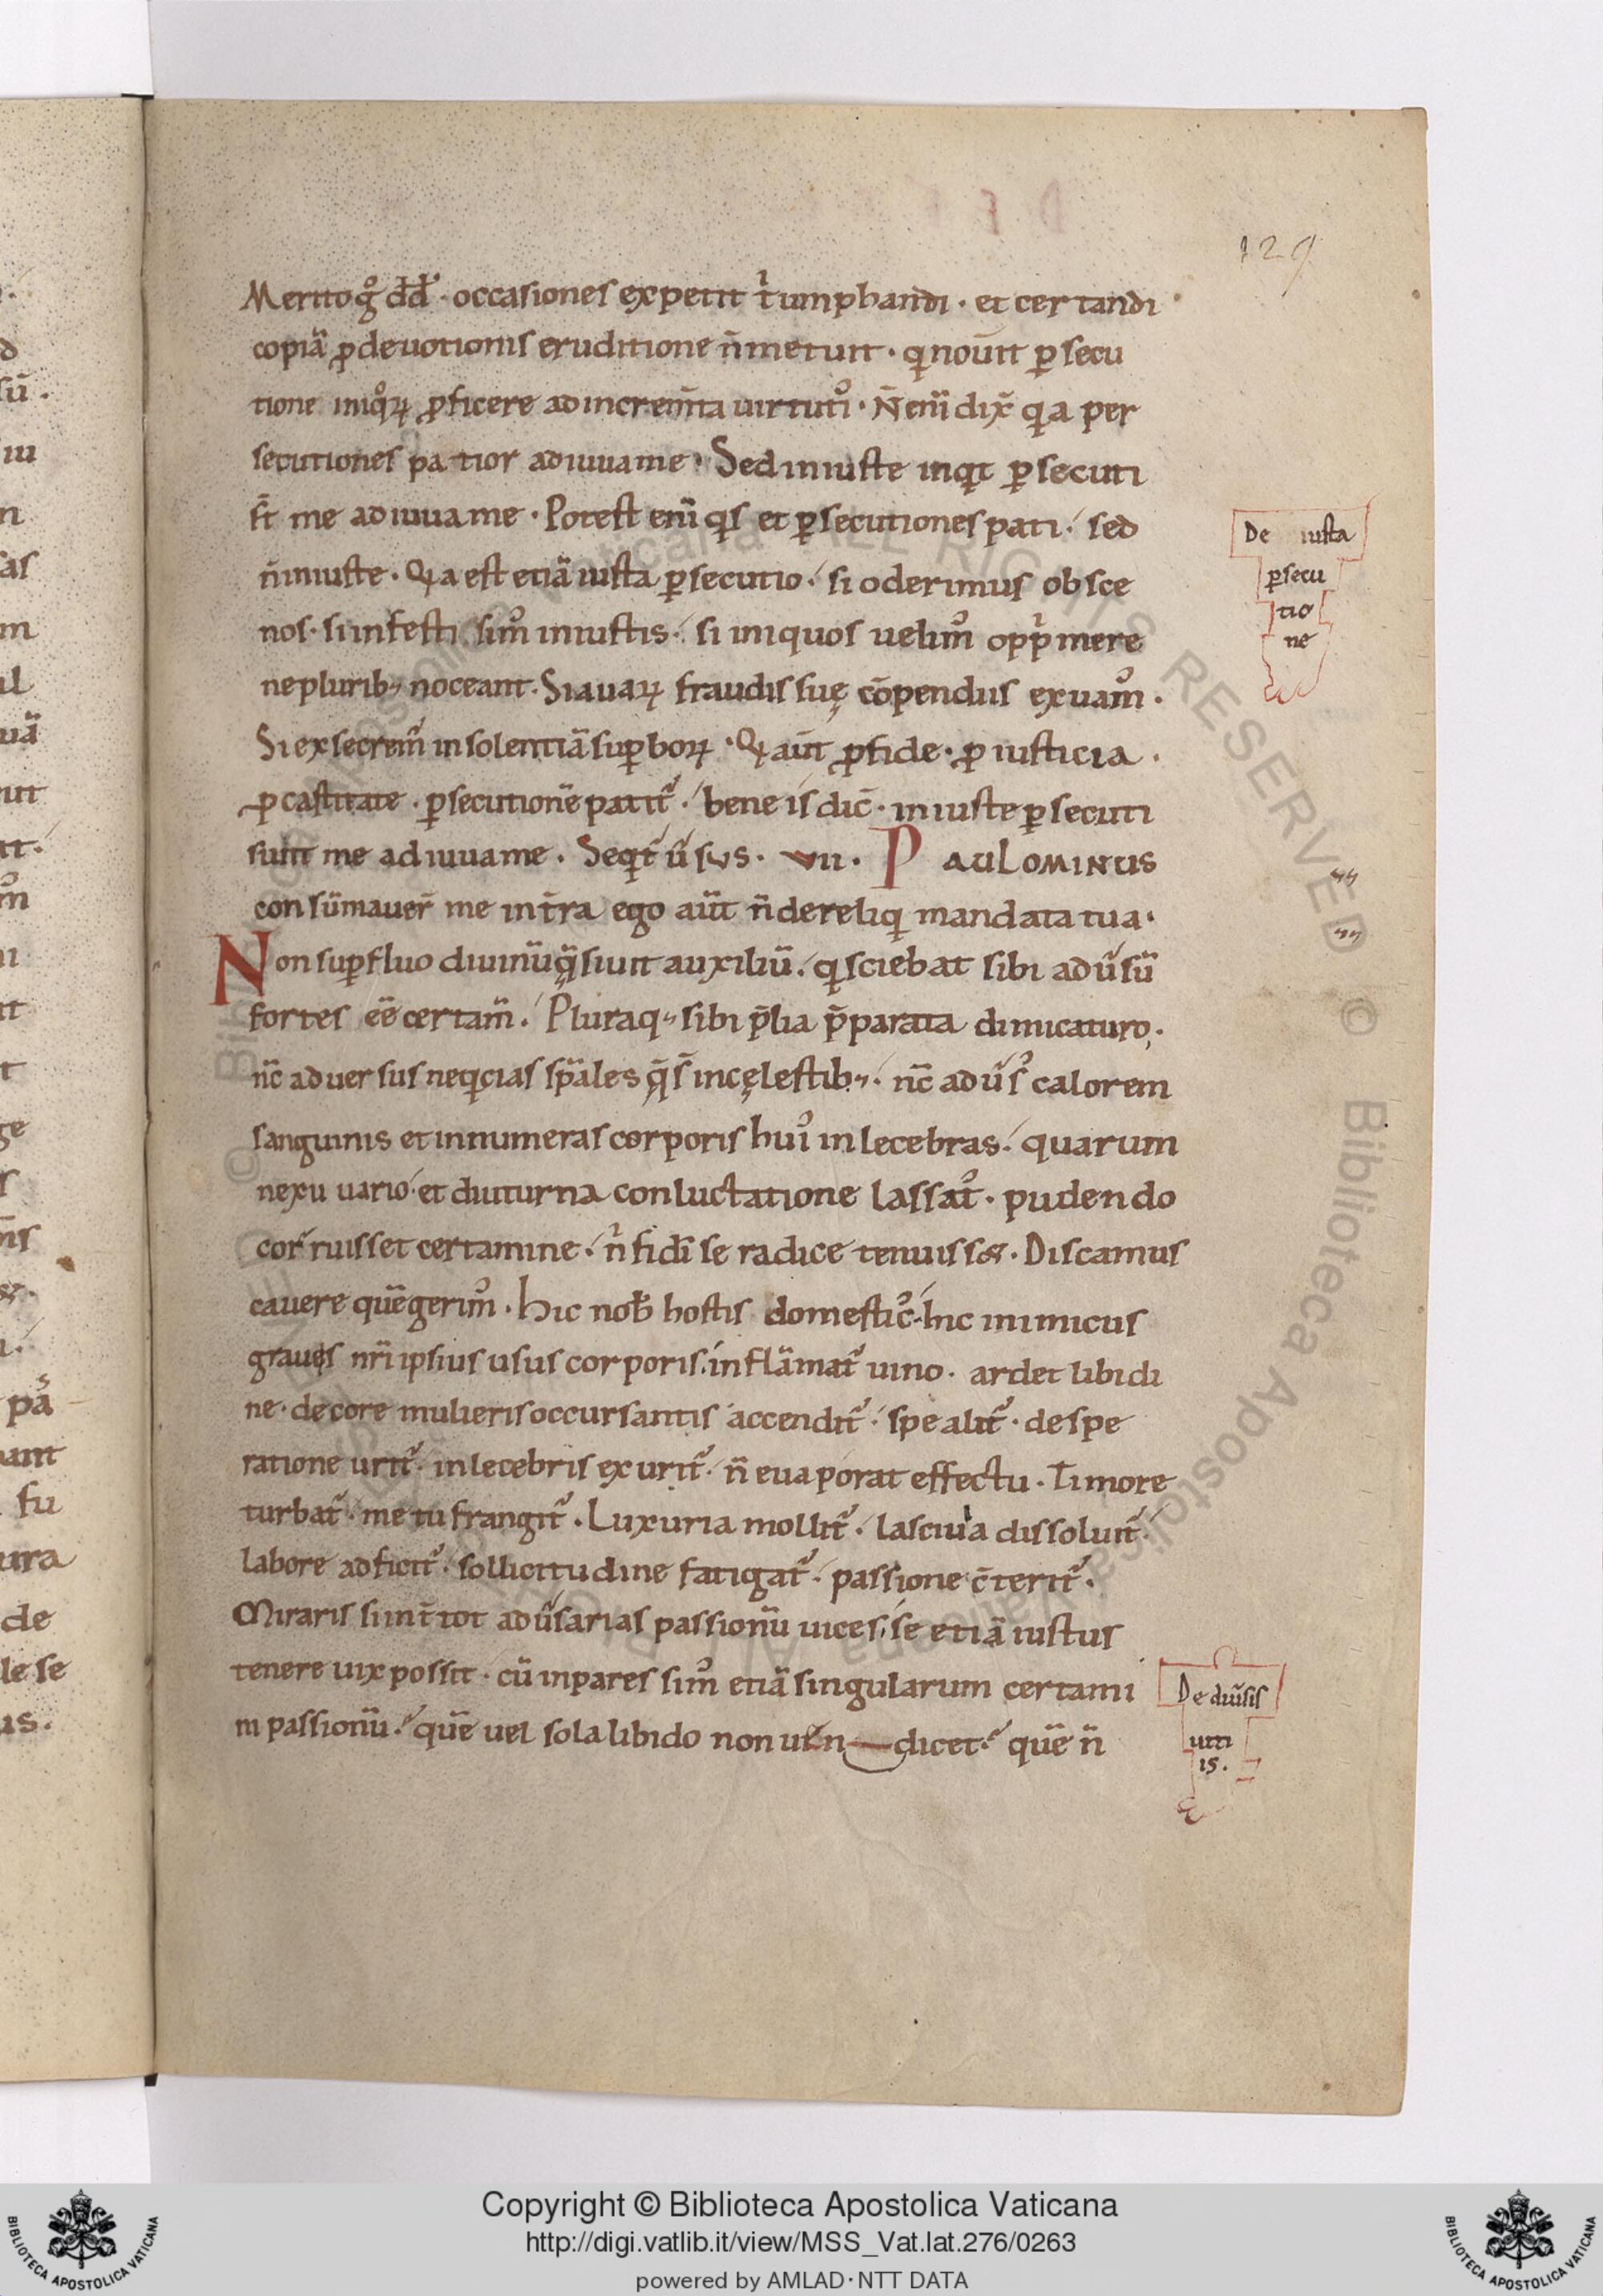 129
Meritog̊ dd̃ · occasiones expetit tͥumphandi · et cer tandi
copiã ꝓ deuotionis eruditione ñ metuit · qͥ nouit̃ ꝑ secu
tione iniqͦꝝ ꝓficere ad increm̃ta uirtutũ · Ñ enĩ dix̃ qͥa per
secutiones pa tior adiuuame · Sed iniuste inqͥt ꝑsecuti
st̃ me adiuuame · Potest enĩ qͥs et ꝑsecutiones pati · sed
ñ iniuste · Qͥa est etiã iusta ꝑsecutio · si oderimus obsce
nos · si infesti simꝰ iniustis · si iniquos uelimꝰ oppͥmere
ne plurib; noceant · Si auaꝝ fraudis suę cõpendiis exuamꝰ ·
Si exsecremꝰ insolentiã suꝑboꝝ · Qͥ aut̃ ꝓ fide · ꝓ iusticia ·
ꝓ castitate · ꝑsecutionẽ patit᷑ · bene is dic̃ · iniuste ꝑsecuti
sunt me adiuuame · Seqͥt᷑ ũsus · VII · PAULOMINUS
consũmauer̃ me in t̃ra ego aut̃ ñ dereliqͥ mandata tua ·
Non suꝑfluo diuinũ q̨̃siuit auxiliũ · qͥ sciebat sibi adũsũ
fortes eẽ certam̃ · Pluraq; sibi p̃lia p̃parata dimicaturo ·
nc̃ aduersus neqͥcias sp̃ales q̨̃ s̃ incęlestib; · nc̃ adũsꝰ calorem
sanguinis et innumeras corporis huiꝰ inlecebras · quarum
nexu uario · et diuturna conluctatione lassatꝰ · pudendo
cor ruisset certamine · nͥ fidei se radice tenuiss& · Discamus
cauere quẽ gerimꝰ · Hic nob̃ hostis domesticꝰ · hic inimicus
grauis nr̃i ipsius usus corporis · inflãmat᷑ uino · ardet libidi
ne · decore mulieris occursantis accendit᷑ · spe alit᷑ · despe
ratione urit᷑ · inlecebris exurit᷑ · ñ euaporat effectu · Timore
turbat᷑ · metu frangit᷑ · Luxuria mollit᷑ · lasciuia dissoluit᷑ ·
labore adficit᷑ · sollicitudine fatigat᷑ · passione c̃terit᷑ ·
Miraris si int̃ tot adũsarias passionũ uices · se etiã iustus
tenere uix possit · cũ inpares simꝰ etiã singularum certami
ni passionũ · quẽ uel sola libido non uen dicet · quẽ ñ
De iusta
ꝑsecu
tio
ne
De diũsis
uiti
is.
Copyright © Biblioteca Apostolica Vaticana
http://digi.vatlib.it/view/MSS_Vat.lat.276/0263
powered by AMLAD·NTT DATA
BIBLIOTECA APOSTOLICA VATICANA
BIBLIOTECA APOSTOLICA VATICANA